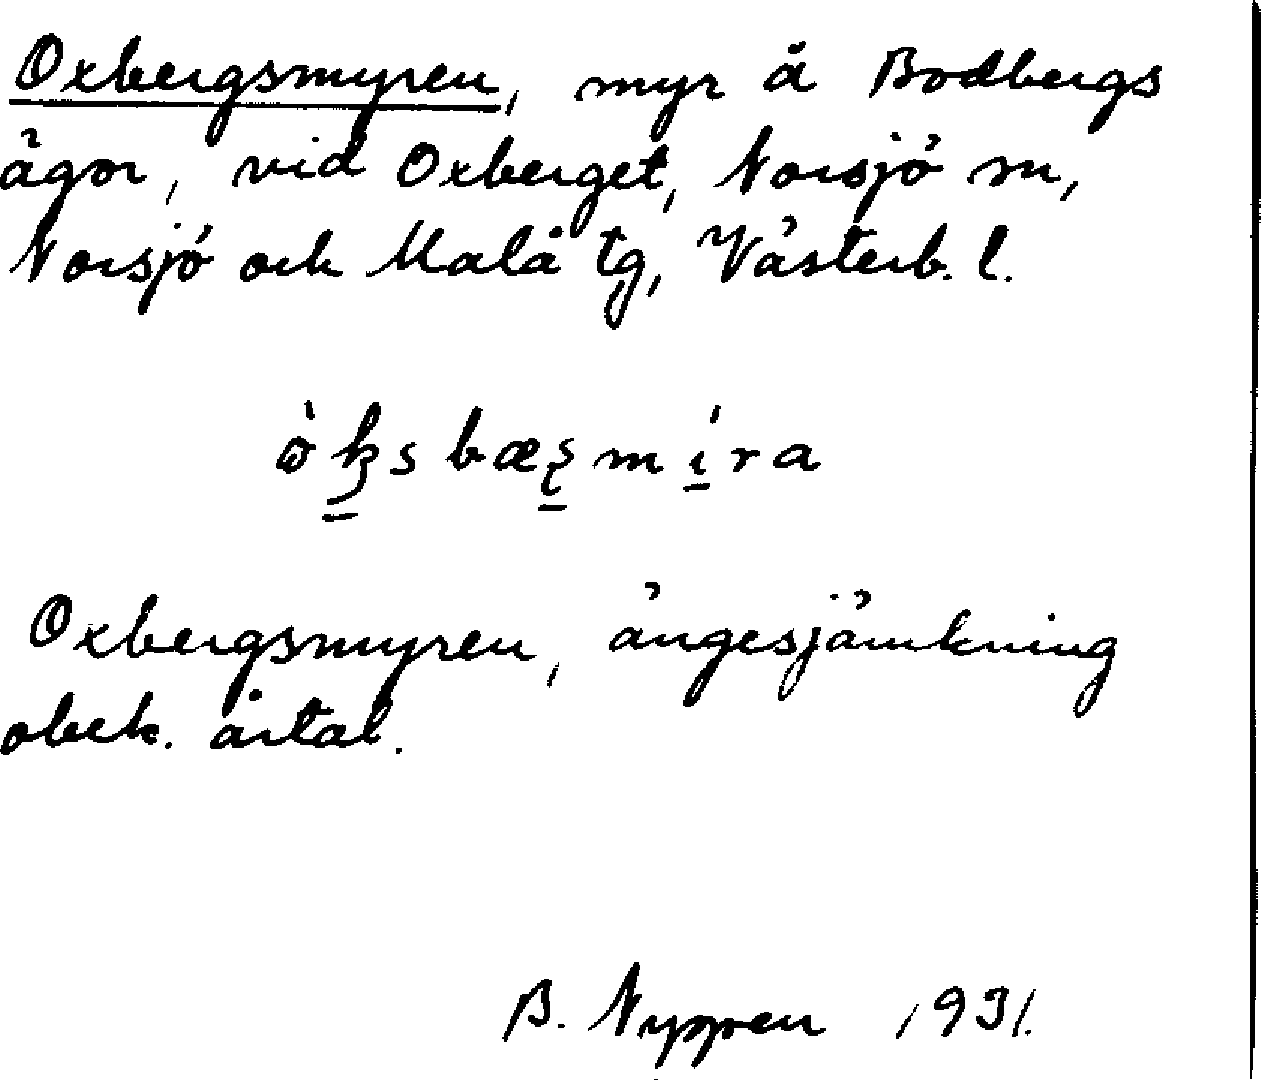 Oxbergsmyren, myr å Bodbergs
ägor, vid Oxberget, Norsjö sn,
Norsjö och Malå tg, Västerb. l.
Oxbergsmyren, ängesjämkning
obek. årtal.
B. Nygren 1931.